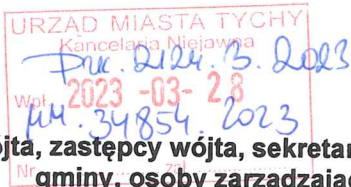 URZĄD MIASTA TYCHY
Kancelaria Niejawna
2124. 3. 2023
Wpł. 2023 -03- 28
34854. 2023
Nr zał.
jta, zastępcy wójta, sekretar
gminy, osoby zarządzając